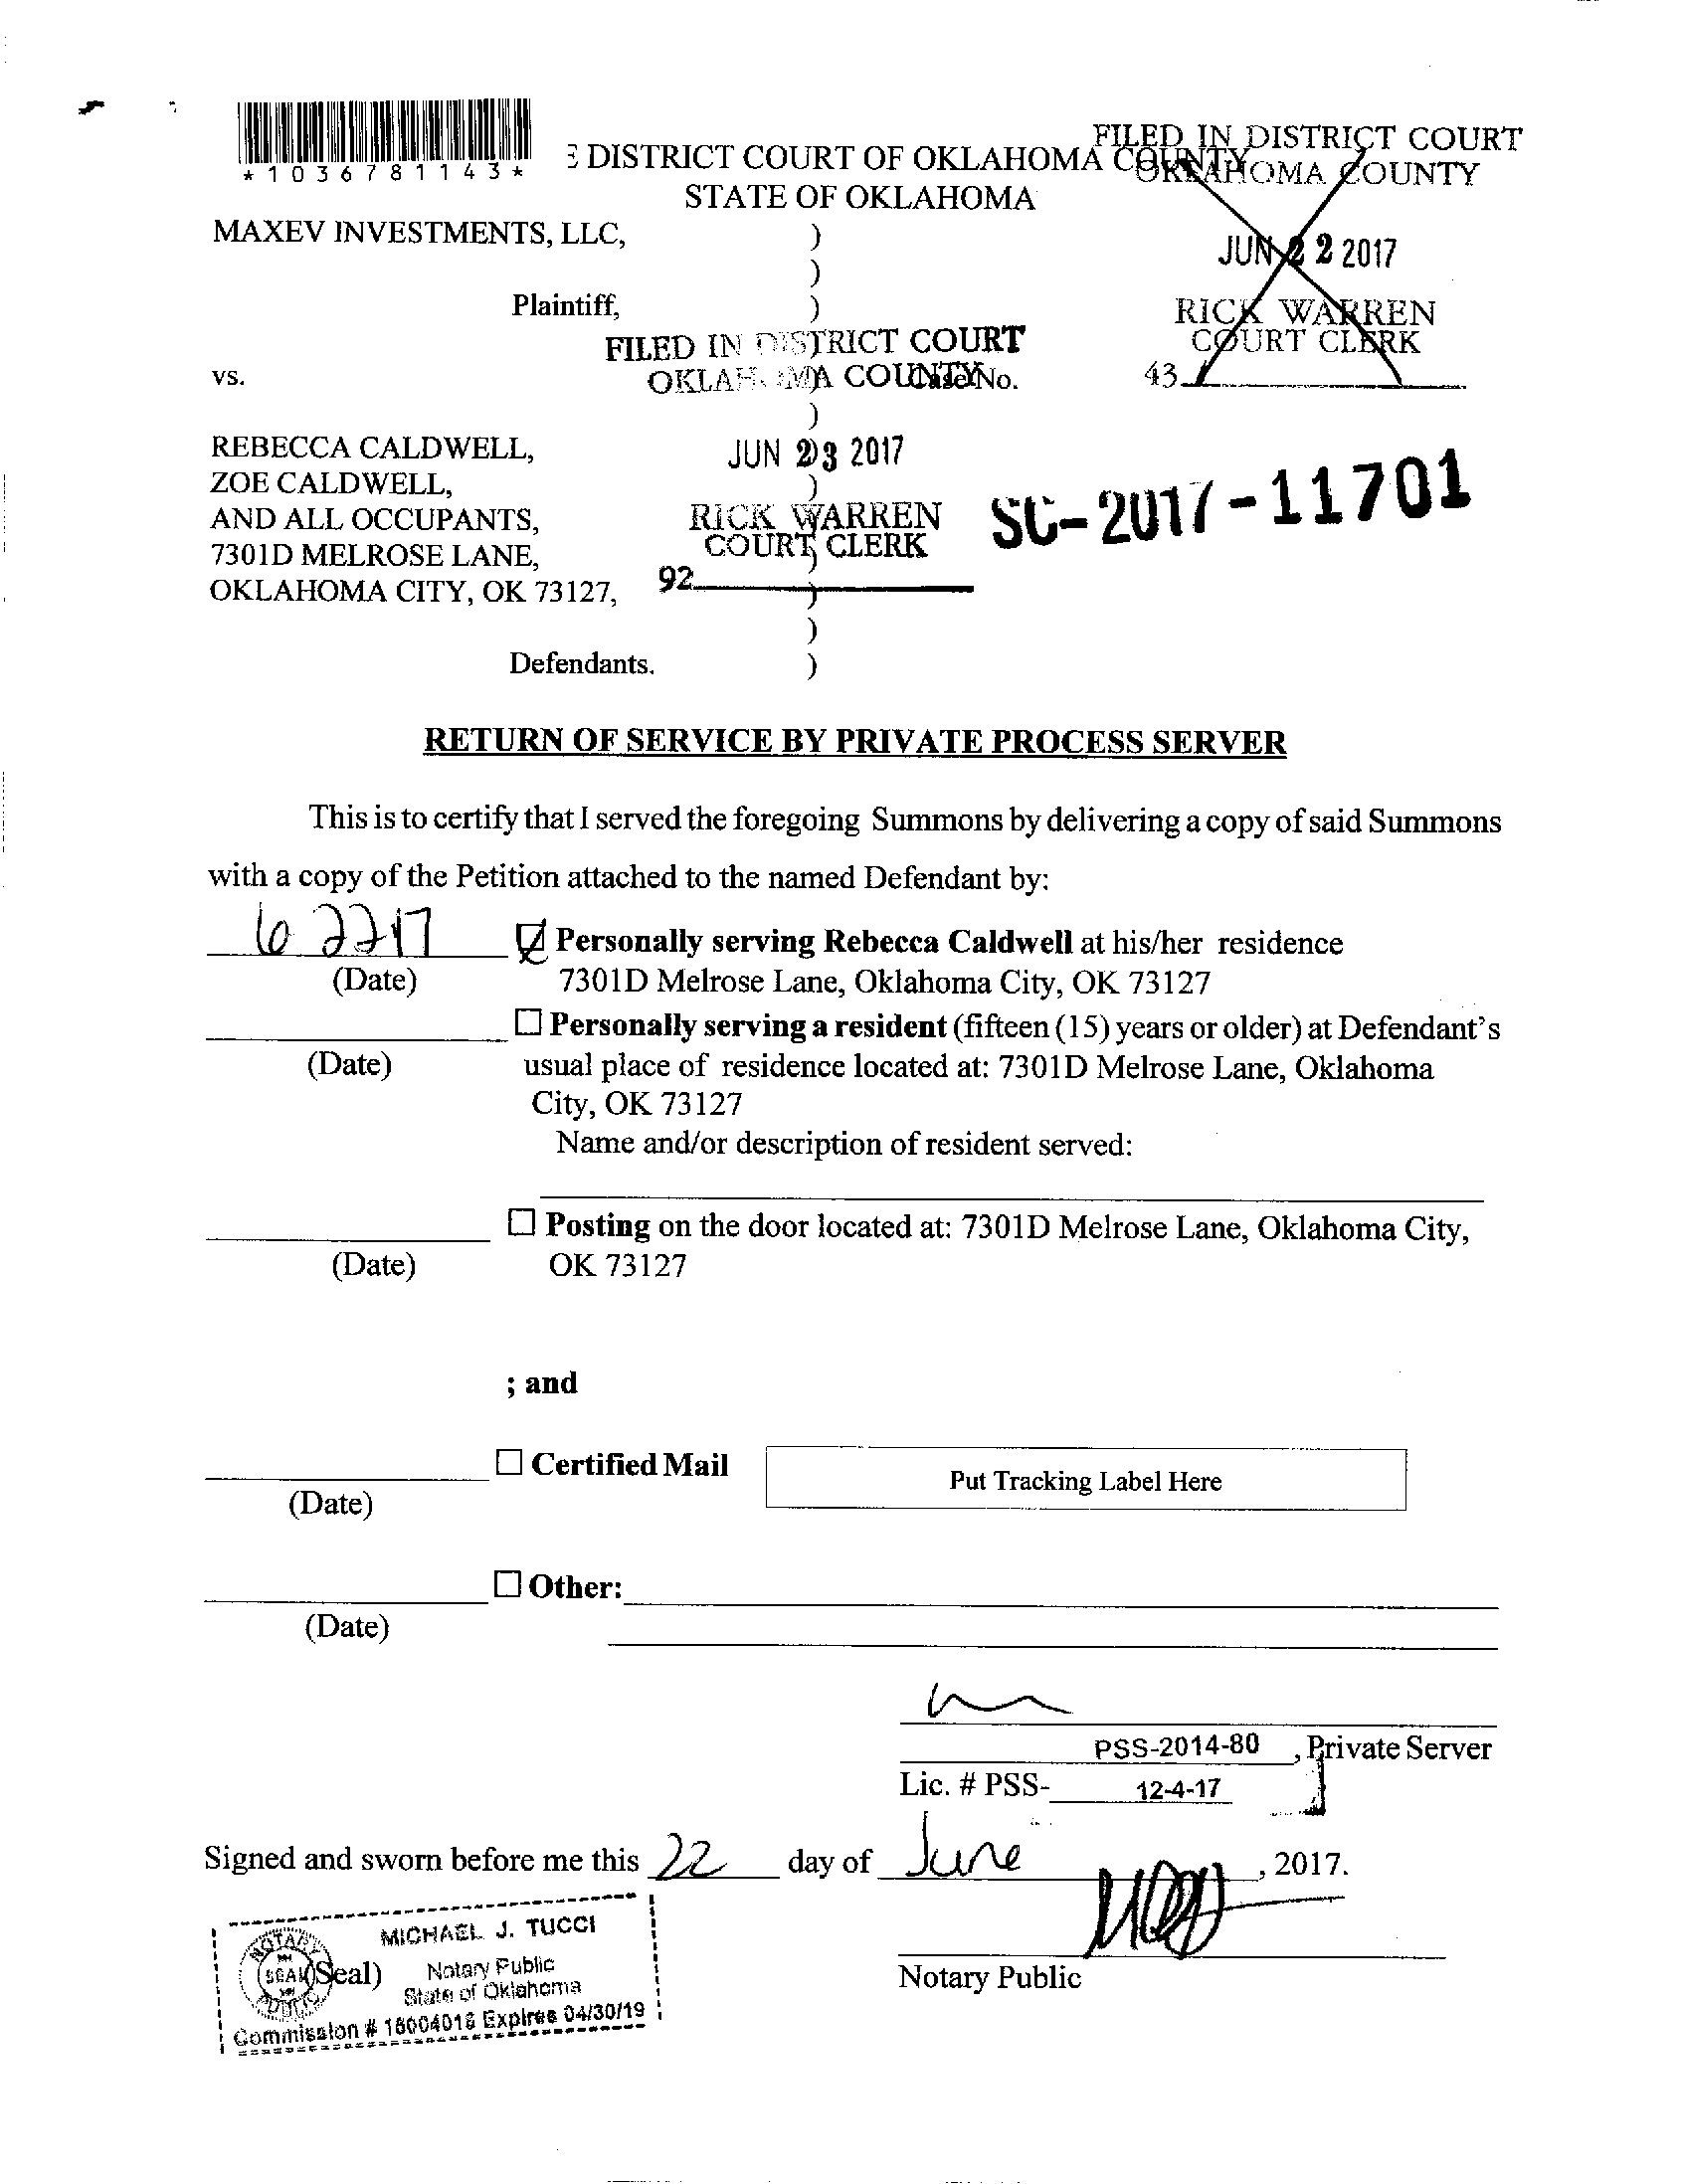 *1036781143*
E DISTRICT COURT OF OKLAHOMA COUNTY
STATE OF OKLAHOMA
FILED IN DISTRICT COURT
OKLAHOMA COUNTY
JUN 22 2017
RICK WARREN
COURT CLERK
43
MAXEV INVESTMENTS, LLC, )
)
Plaintiff, )
vs. ) Case No.
)
FILED IN DISTRICT COURT
OKLAHOMA COUNTY
JUN 23 2017
RICK WARREN
COURT CLERK
92
SC-2017-11701
REBECCA CALDWELL, )
ZOE CALDWELL, )
AND ALL OCCUPANTS,
7301D MELROSE LANE, )
OKLAHOMA CITY, OK 73127, )
)
Defendants. )
RETURN OF SERVICE BY PRIVATE PROCESS SERVER
This is to certify that I served the foregoing Summons by delivering a copy of said Summons
with a copy of the Petition attached to the named Defendant by:
6 22 17 ☑ Personally serving Rebecca Caldwell at his/her residence
(Date) 7301D Melrose Lane, Oklahoma City, OK 73127
☐ Personally serving a resident (fifteen (15) years or older) at Defendant's
(Date) usual place of residence located at: 7301D Melrose Lane, Oklahoma
City, OK 73127
Name and/or description of resident served:
☐ Posting on the door located at: 7301D Melrose Lane, Oklahoma City,
(Date) OK 73127
; and
☐ Certified Mail Put Tracking Label Here
(Date)
☐ Other:
(Date)
PSS-2014-80, Private Server
Lic. # PSS- 12-4-17
Signed and sworn before me this 22 day of June, 2017.
MICHAEL J. TUCCI
NOTARY PUBLIC
SEAL
(Seal) Notary Public
State of Oklahoma
Commission # 15004018 Expires 04/30/19
Notary Public